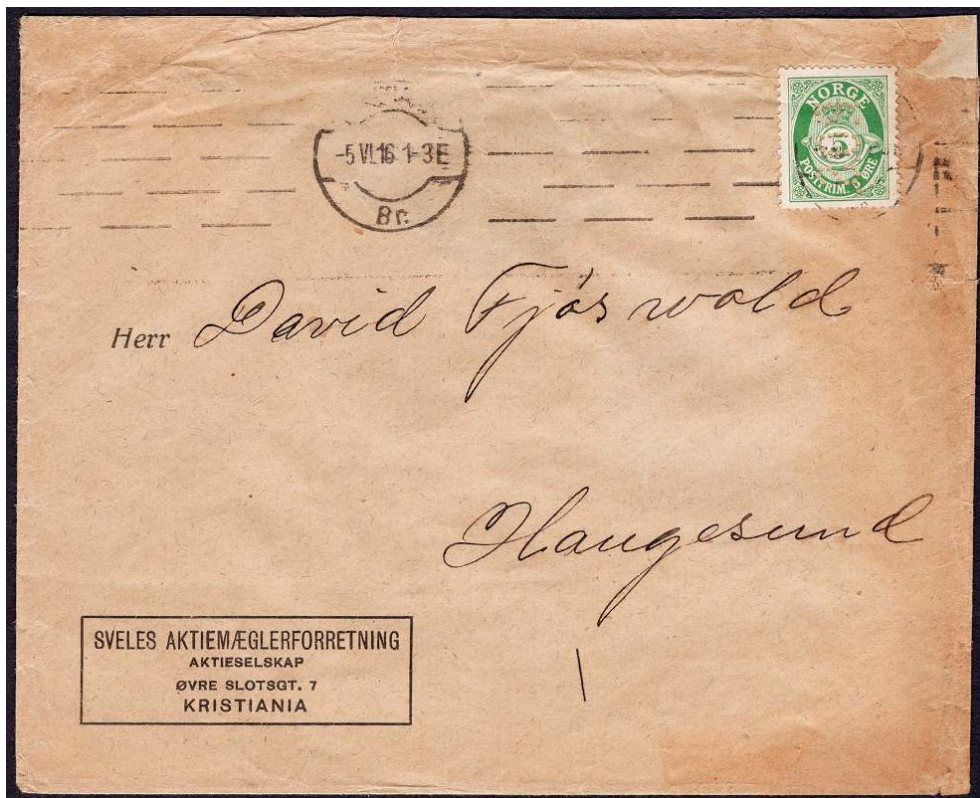 NORGE
5
POSTFRIM. 5 ØRE
-5 VI.16 1-3 E
Br.
Herr David Fjøswold
Haugesund
SVELES AKTIEMÆGLERFORRETNING
AKTIESELSKAP
ØVRE SLOTSGT. 7
KRISTIANIA